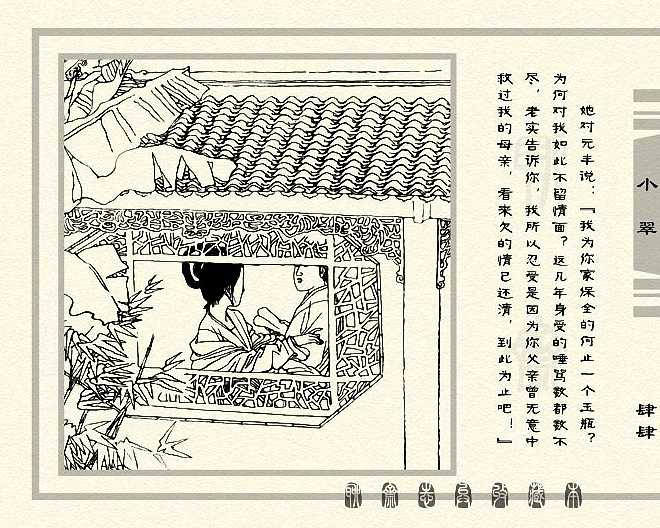 她对元丰说：“我为你家保全的何止一个玉瓶？
为何对我如此不留情面？这几年身受的唾骂数都数不
尽，老实告诉你，我所以忍受是因为你父亲曾无意中
救过我的母亲，看来欠的情已还清，到此为止吧！”
小翠
肆肆